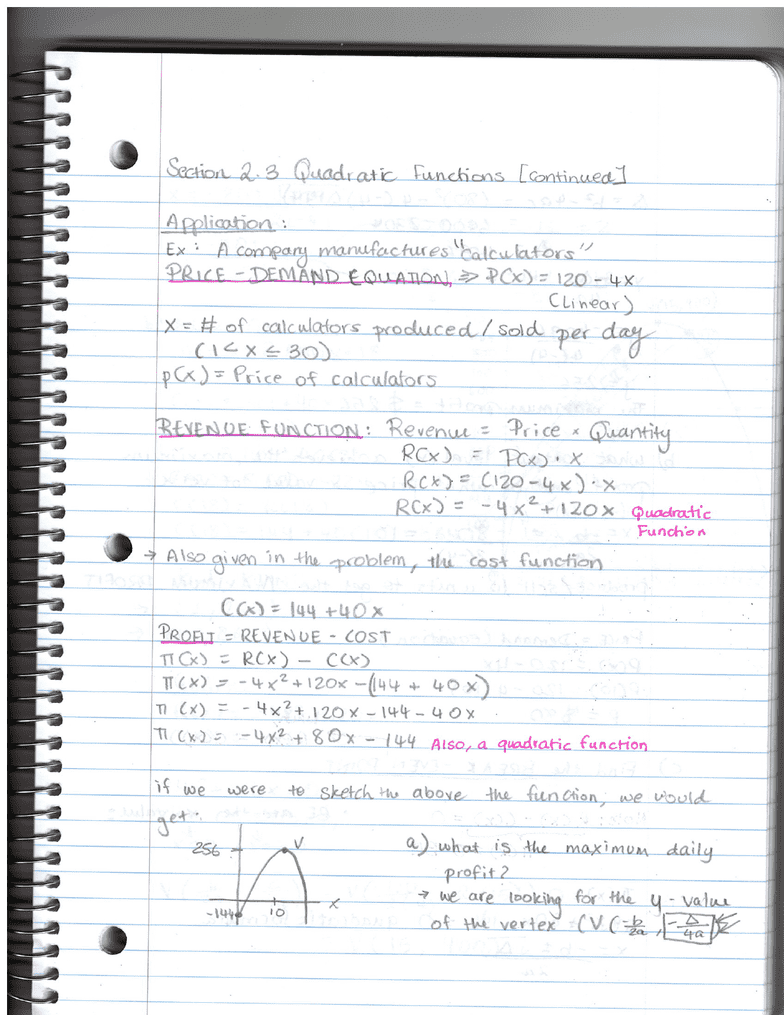 Section 2.3 Quadratic Functions [continued]
Application :
Ex : A company manufactures "calculators"
PRICE - DEMAND EQUATION, ⇒ P(x) = 120 - 4x
(Linear)
x = # of calculators produced / sold per day
(1 ≤ x ≤ 30)
p(x) = Price of calculators
REVENUE FUNCTION : Revenue = Price × Quantity
R(x) = P(x) · x
R(x) = (120 - 4x) · x
R(x) = -4x² + 120x Quadratic
Function
→ Also given in the problem, the cost function
C(x) = 144 + 40x
PROFIT = REVENUE - COST
π(x) = R(x) - C(x)
π(x) = -4x² + 120x - (144 + 40x)
π(x) = -4x² + 120x - 144 - 40x
π(x) = -4x² + 80x - 144 Also, a quadratic function
if we were to sketch the above the function, we would
get :
256 V
-144 10 x
a) what is the maximum daily
profit?
→ we are looking for the y - value
of the vertex = (V (-b/2a, -Δ/4a)